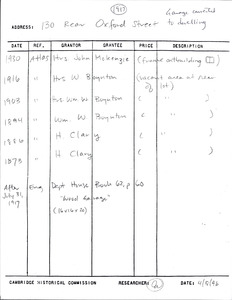 (1917)
Garage converted
ADDRESS: 130 Rear Oxford Street to dwelling
DATE REF. GRANTOR GRANTEE PRICE DESCRIPTION
1930 Atlas Mrs. John McKenzie (frame outbuilding)
1916 " Mrs W. Boynton (vacant area at rear of lot)
1903 " Mrs Wm W. Boynton ( " )
1894 " Wm W. Boynton ( " )
1886 " H. Clary ( " )
1873 " H. Clary ( " )
After July 31, 1917 Eng. Dept. House Book 62, p 60
"Wood Garage"
(16x16x10)
CAMBRIDGE HISTORICAL COMMISSION RESEARCHER: DATE: 4/5/